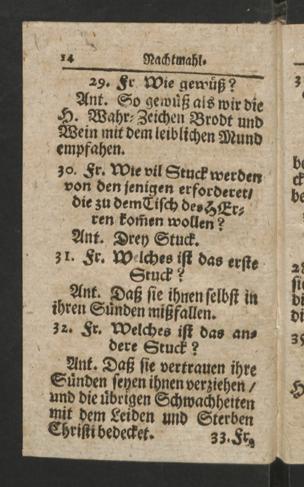 14 Nachtmahl.
29. Fr. Wie gewüß?
Ant. So gewüß als wir die
H. Wahr-Zeichen Brodt und
Wein mit dem leiblichen Mund
empfahen.
30. Fr. Wie vil Stuck werden
von den jenigen erforderet/
die zu dem Tisch des HEr-
ren kom̃en wollen?
Ant. Drey Stuck.
31. Fr. Welches ist das erste
Stuck?
Ant. Daß sie ihnen selbst in
ihren Sünden mißfallen.
32. Fr. Welches ist das an-
dere Stuck?
Ant. Daß sie vertrauen ihre
Sünden seyen ihnen verziehen/
und die übrigen Schwachheiten
mit dem Leiden und Sterben
Christi bedecket.
33. Fr.